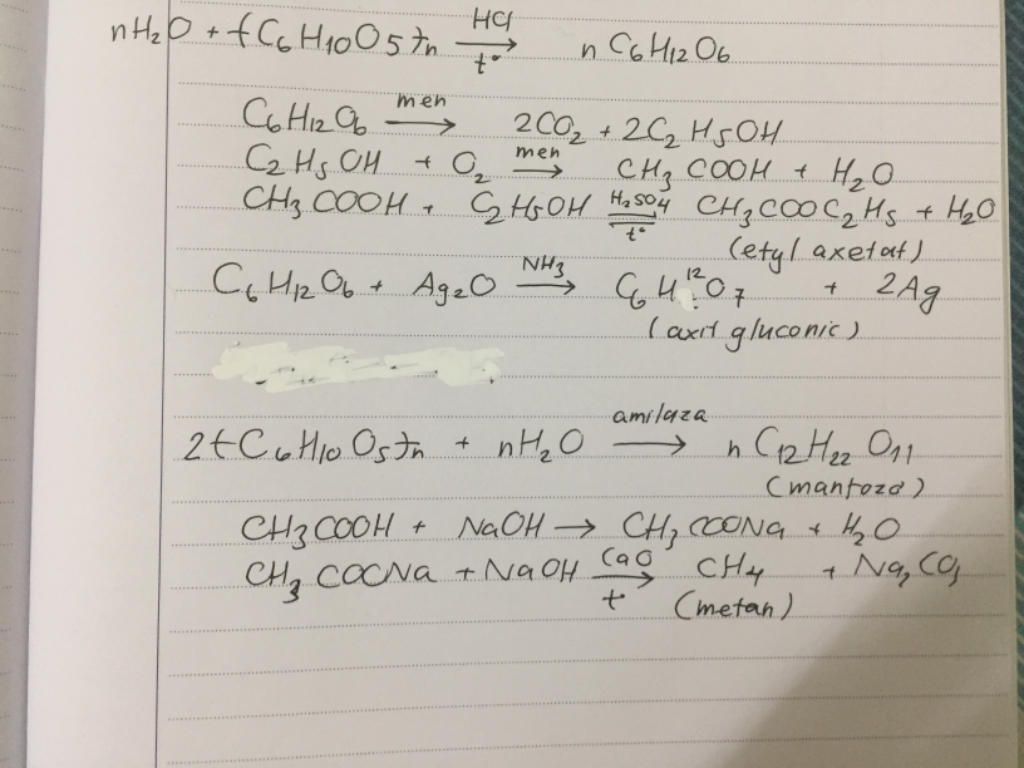 nH₂O + (C₆H₁₀O₅)n →(HCl, t°) n C₆H₁₂O₆
C₆H₁₂O₆ →(men) 2CO₂ + 2C₂H₅OH
C₂H₅OH + O₂ →(men) CH₃COOH + H₂O
CH₃COOH + C₂H₅OH ⇌(H₂SO₄, t°) CH₃COOC₂H₅ + H₂O
(etyl axetat)
C₆H₁₂O₆ + Ag₂O →(NH₃) C₆H₁₂O₇ + 2Ag
(axit gluconic)
2(C₆H₁₀O₅)n + nH₂O →(amilaza) n C₁₂H₂₂O₁₁
(mantozo)
CH₃COOH + NaOH → CH₃COONa + H₂O
CH₃COONa + NaOH →(CaO, t°) CH₄ + Na₂CO₃
(metan)